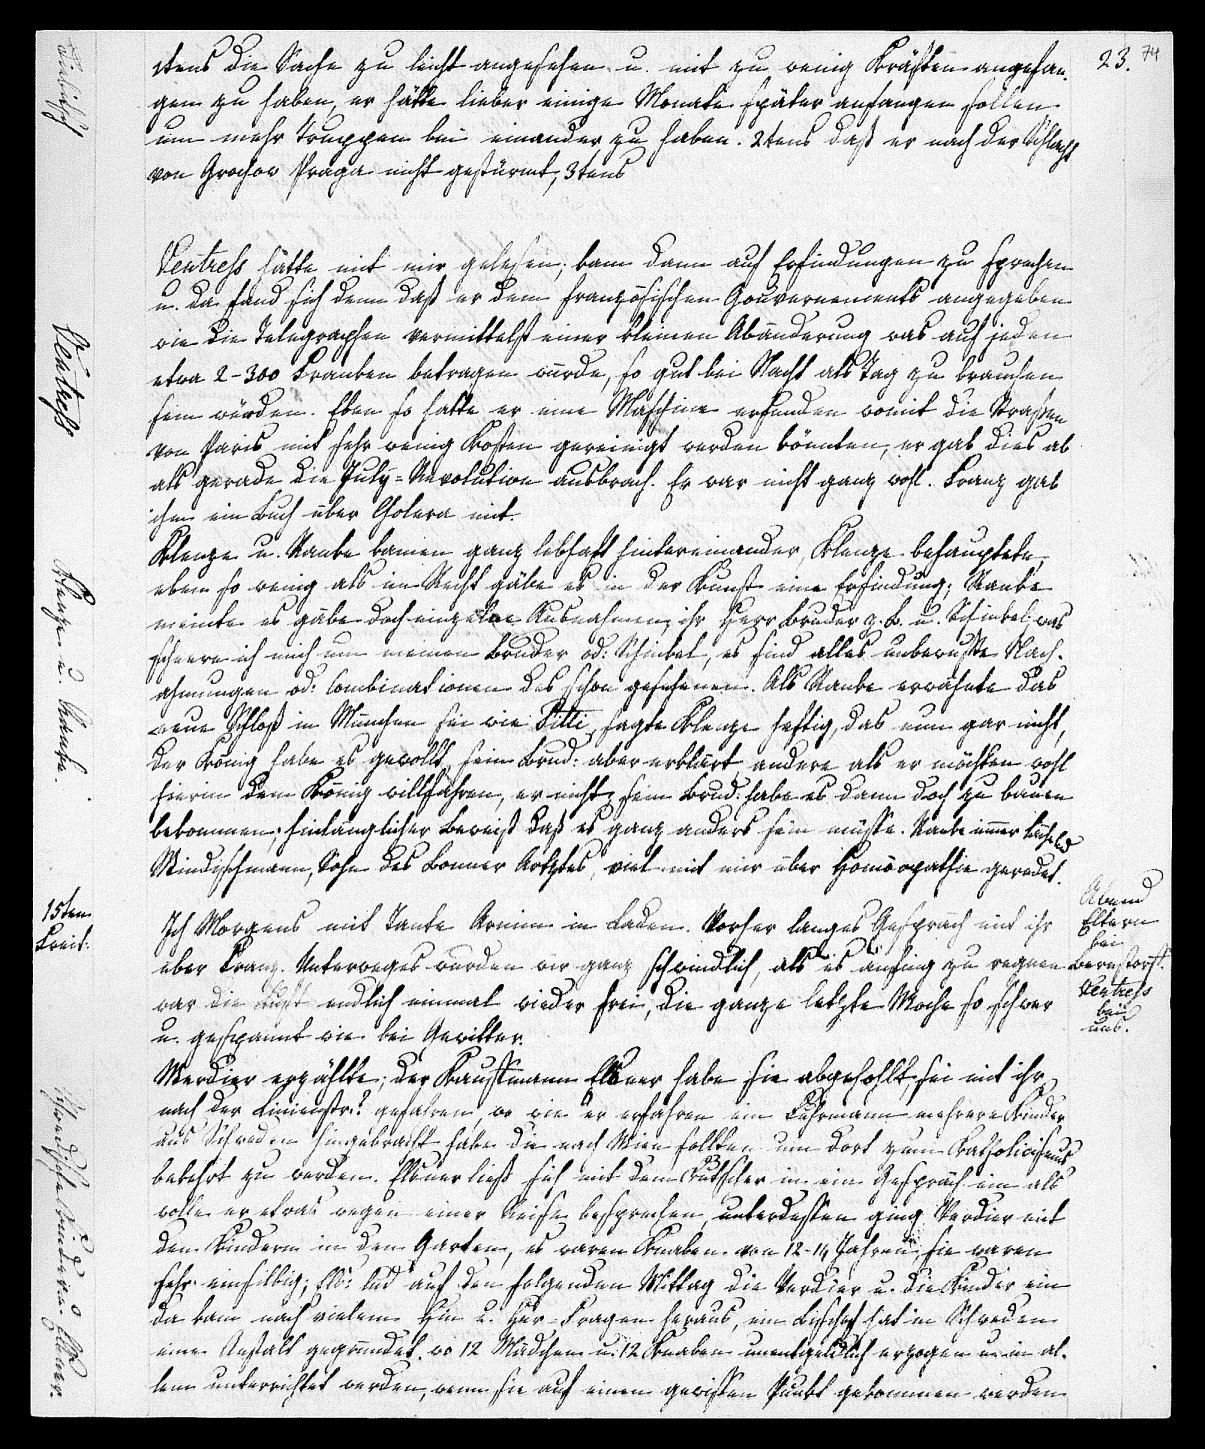 23. 74
1tens die Sache zu leicht angesehen u. mit zu wenig Kräften angefan-
gen zu haben, er hätte lieber einige Monate später anfangen sollen
um mehr Truppen bei einander zu haben. 2tens daß er nach der Schlacht
von Grochow Praga nicht gestürmt, 3tens
Ventress hatte mit mir gelesen; kam dann auf Erfindungen zu sprechen
u. da fand sich denn daß er dem französischen Gouvernements angegeben
wie die Telegraphen vermittelst einer kleinen Abänderung was auf jeden
etwa 2-300 Franken betragen würde, so gut bei Nacht als Tag zu brauchen
sein würden. Eben so hatte er eine Maschine erfunden womit die Straßen
von Paris mit sehr wenig Kosten gereinigt werden könnten, er gab dies ab
als gerade die July-Revolution ausbrach. Er war nicht ganz wohl. Franz gab
ihm ein Buch über Colera mit.
Ventress
Klenze u. Rauke kamen ganz lebhaft hintereinander, Klenze behauptete,
eben so wenig als im Recht gäbe es in der Kunst eine Erfindung; Ranke
meinte es gäbe doch einzelne Ausnahmen, ihr Herr Bruder z. B. u. Schinkel was
scheere ich mich um meinen Bruder od: Schinkel, es sind alles unbewußte Nach-
ahmungen od: Combinationen des schon gesehenen. Als Ranke erwähnte das
neue Schloß in München sei wie Pitti, sagte Klenze heftig, das nun gar nicht,
der König habe es gewollt, sein Brud: aber erklärt andere als er möchten wohl
hierin dem König willfahren, er nicht, sein Brud: habe es dann doch zu bauen
bekommen; hinlänglicher Beweiß daß es ganz anders sein müsse. Ranke immer lächeld
Windischmann, Sohn des Bonner Arztes, viel mit mir über Homöopathie geredet.
Klenze u. Ranke.
15ten
Freit:
Ich Morgens mit Tante Arnim in Laden. Vorher langes Gespräch mit ihr
über Franz. Unterweges wurden wir ganz schwindlich, als es anfing zu regnen
war die Luft endlich einmal wieder frei, die ganze letzte Woche so schwer
u. gespannt wie bei Gewitter.
Abend
Eltern
bei
Bernstorff.
Ventress
bei
uns.
Verdier erzählte; der Kaufmann Elsner habe sie abgehohlt sei mit ihr
nach der Linienstr: gefahren, wo wie er erfahren ein Fuhrmann mehrere Kinder
aus Schweden hingebracht habe die nach Wien sollten um dort zum Katholicismus
bekehrt zu werden. Elsner ließ sich mit dem Kutscher in ein Gespräch ein als
wolle er etwas wegen einer Reise besprechen, unterdessen ging Verdier mit
den Kindern in den Garten, es waren Knaben von 12-14 Jahren, sie waren
sehr einsilbig; Els: lud auf den folgenden Mittag die Verdier u. die Kinder ein
da kam nach vielem Hin u. Her-Fragen heraus, ein Bischof hat in Schweden
eine Anstalt gegründet, wo 12 Mädchen u. 12 Knaben unentgeldlich erzogen u. in al-
lem unterrichtet werden, wenn sie auf einen gewissen Punkt gekommen werden
Schwedische Kinder u. Elsner.